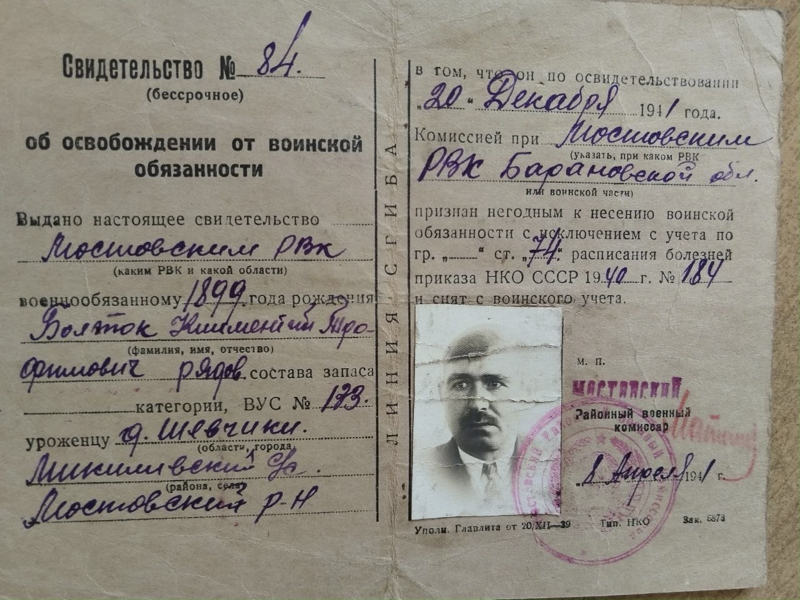 Свидетельство № 84.
(бессрочное)
об освобождении от воинской
обязанности
Выдано настоящее свидетельство
Мостовским РВК
(каким РВК и какой области)
военнообязанному 1899 года рождения
Климентий Тро-
(фамилия, имя, отчество)
фимович рядов. состава запаса
категории, ВУС № 133.
уроженцу д. Шевчики.
(область, города,
с/с.
(района, село)
Мостовский р-н
ЛИНИЯ СГИБА
в том, что он по освидетельствовании
"20" Декабря 1941 года.
Комиссией при Мостовским
(указать, при каком РВК
РВК Барановской обл.
или воинской части)
признан негодным к несению воинской
обязанности с исключением с учета по
гр. "„ ст. "74" расписания болезней
приказа НКО СССР 1940 г. № 184
и снят с воинского учета.
м. п.
МОСТОВСКИЙ
Районный военный
комиссар
"8" Апреля 1941 г.
Уполн. Главлита от 20/XII—39 Тип. НКО Зак. 5873